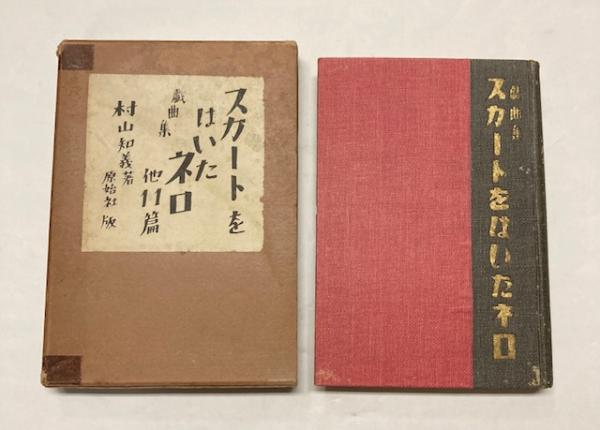 スカートを
はいた
ネロ
戯曲集
他11篇
村山知義著
原始社版
戯曲集
スカートをはいたネロ